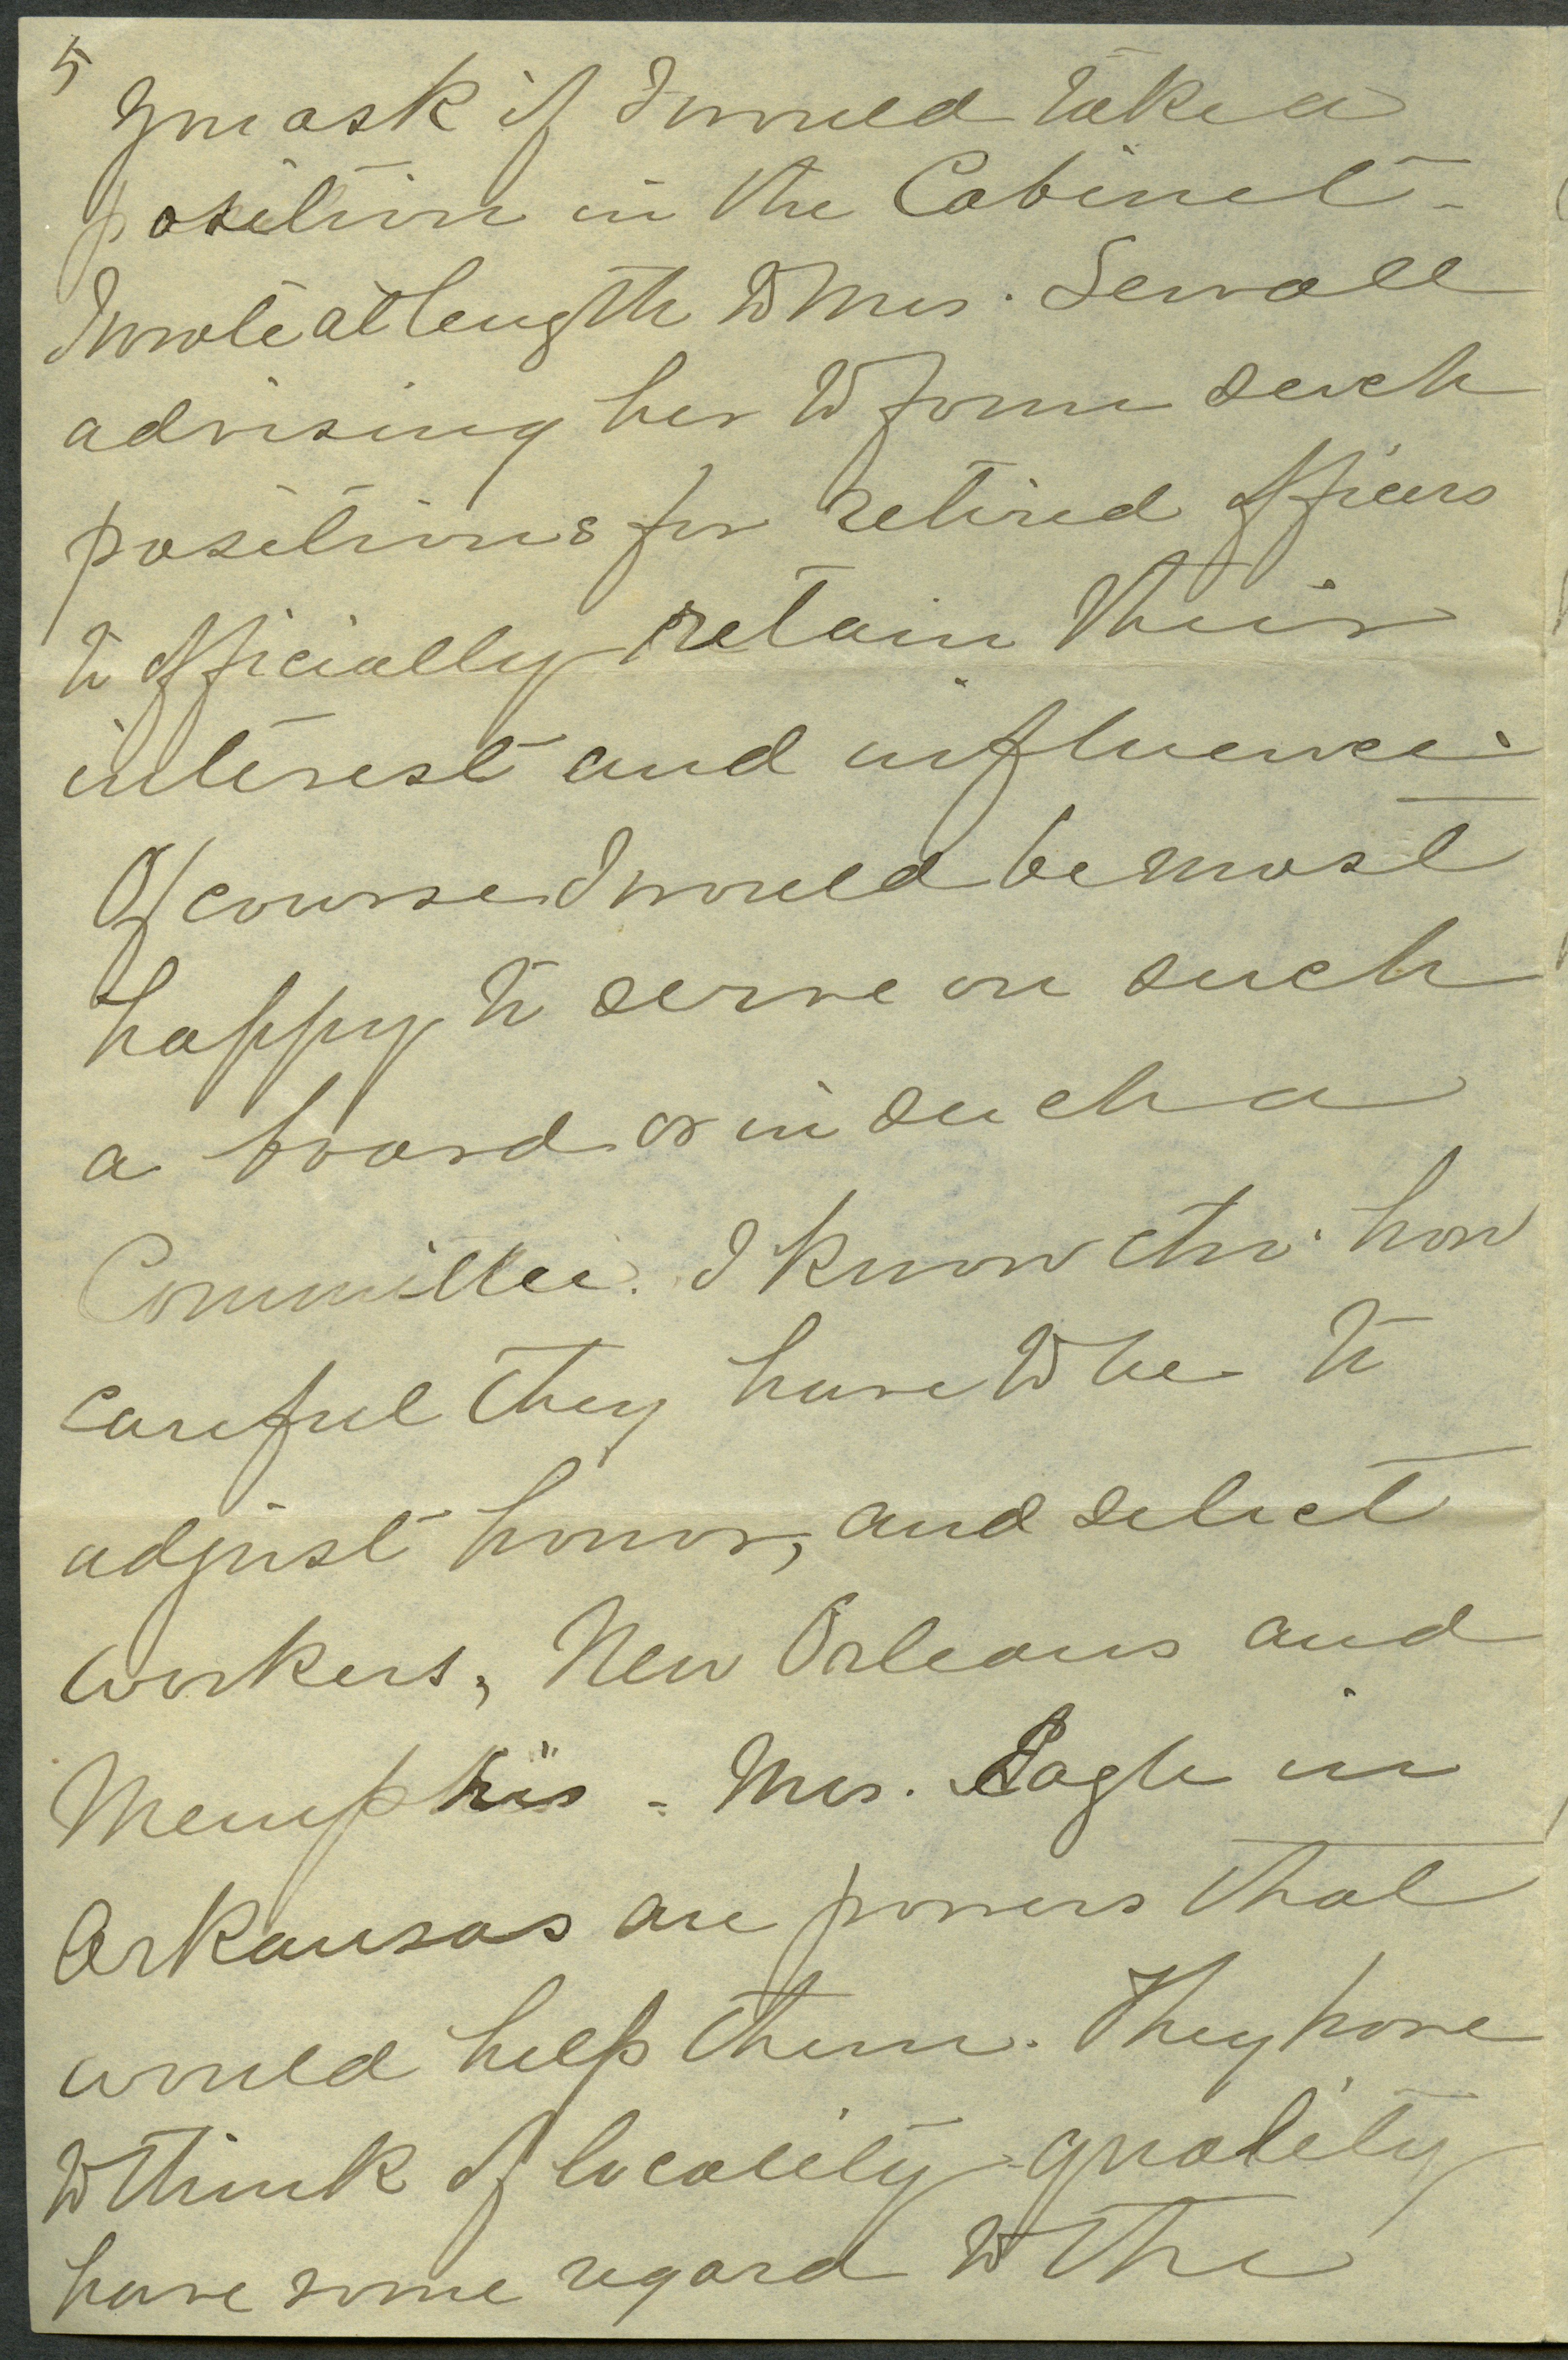 5
You ask if I would take a
position in the Cabinet -
I wrote at length to Mrs. Sewall
advising her to form such
positions for retired officers
to officially retain their
interest and influence.
Of course I would be most
happy to serve on such
a board or in such a
Committee. I know tho' how
careful they have to be to
adjust honors, and select
workers, New Orleans and
Memphis - Mrs. Eagle in
Arkansas are powers that
would help them. They have
to think of locality - quality
have some regard to the